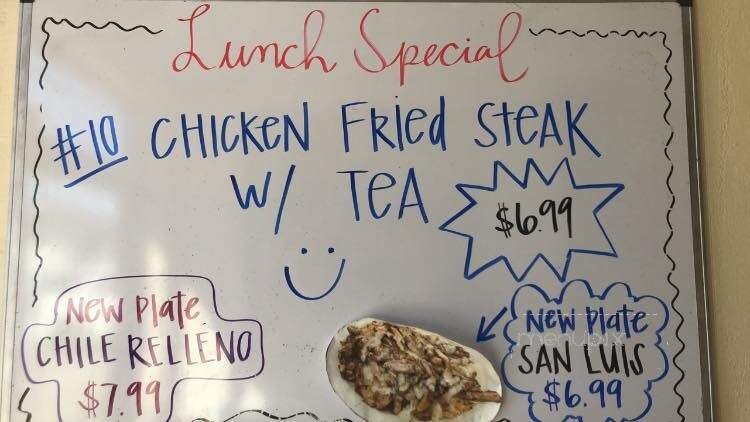 Lunch Special
#10 CHICKEN FRIED STEAK
W/ TEA
$6.99
NEW PLATE
CHILE RELLENO
$7.99
NEW PLATE
menupix
SAN LUIS
$6.99